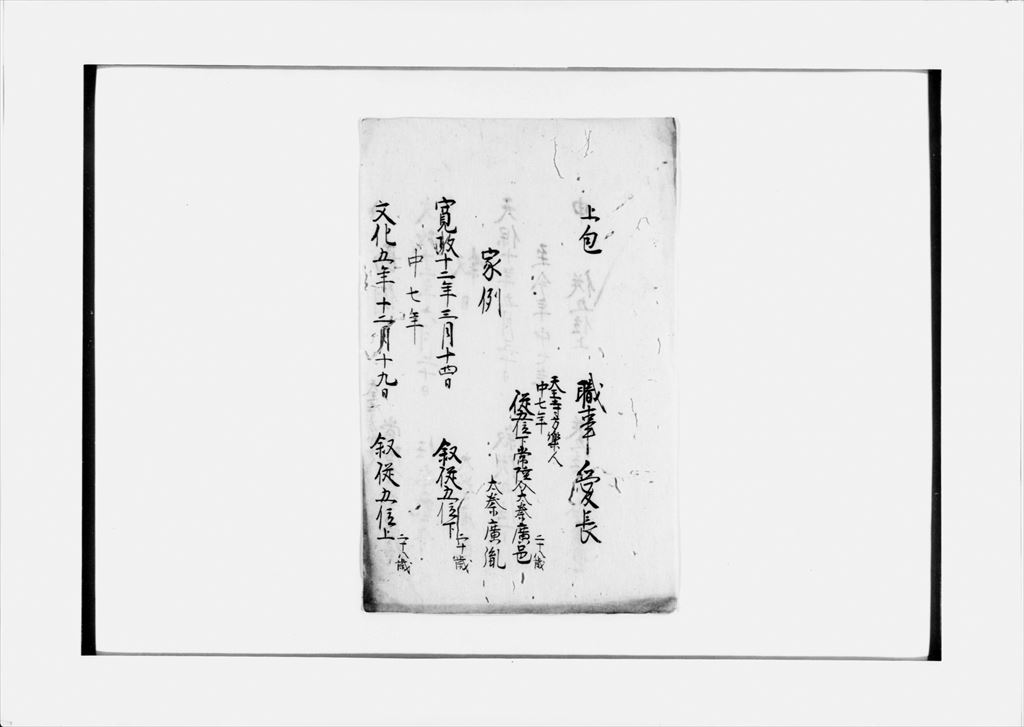 上包
職事愛長
天王寺方樂人
中七年
従五位下常陸介太秦廣邑 二十八歳
家例
太秦廣胤
寛政十二年三月十四日 叙従五位下 二十歳
中七年
文化五年十二月十九日 叙従五位上 二十八歳